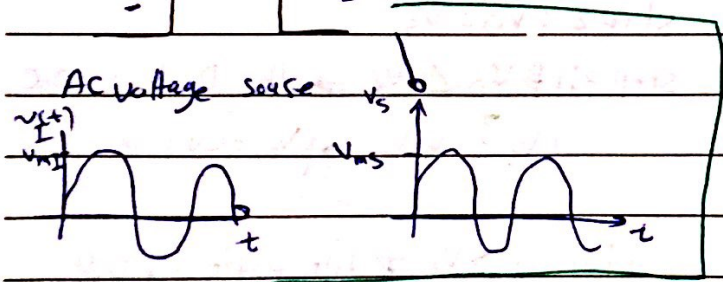 AC voltage source
v(t)
I
VmI
t
Vs
Vms
t